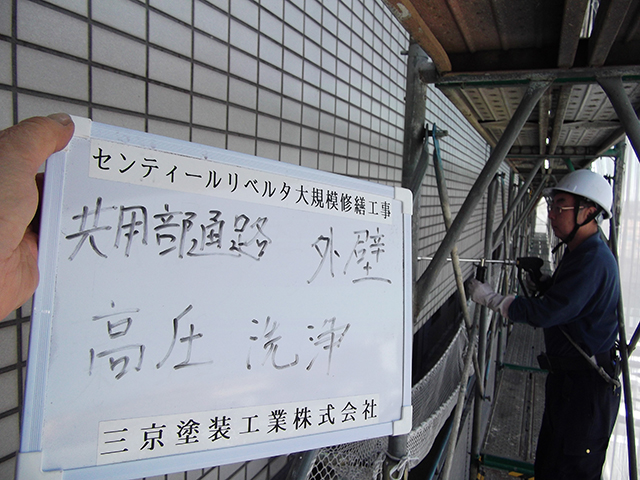 センティールリベルタ大規模修繕工事
共用部通路 外壁
高圧 洗浄
三京塗装工業株式会社